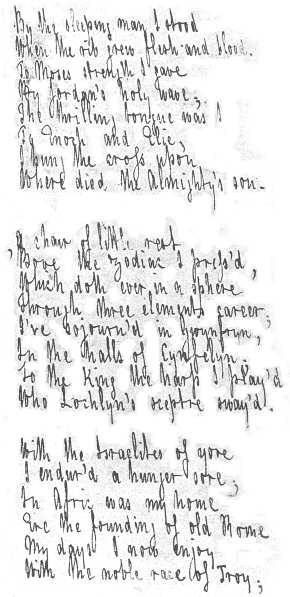 By the sleeping man I stood
When the rib grew flesh and blood.
To Moses strength I gave
By Jordan's holy wave;
The thrilling tongue was I
To Enoch and Elie;
I hung the cross upon
Where died the Almighty's son.
A chair of little rest
'Bove the Zodiac I press'd,
Which doth ever in a sphere
Through three elements career;
I've sojourn'd in Gwynfryn,
In the halls of Cynfelyn.
To the King the harp I play'd
Who Lochlyn's sceptre sway'd.
With the Israelites of yore
I endur'd a hunger sore;
In Afric was my home
Ere the founding of old Rome
My days I now enjoy
With the noble race of Troy;